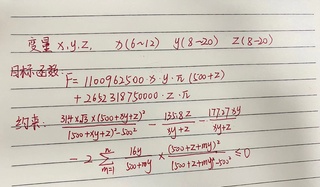 变量 x, y, z,   x(6~12)  y(8~20)  z(8~20)
目标函数: F = 1100962500 · x · y · π (500+z)
+ 2652318750000 · z · π
约束: 314×√3×(500+xy+z)² / (500+xy+z)²-500² - 135.8z / xy+z - 177.27xy / xy+z
- 2 ∑ⁿₘ₌₁ 16y / 500+my × (500+z+my)² / (500+z+my)²-500² ≤0